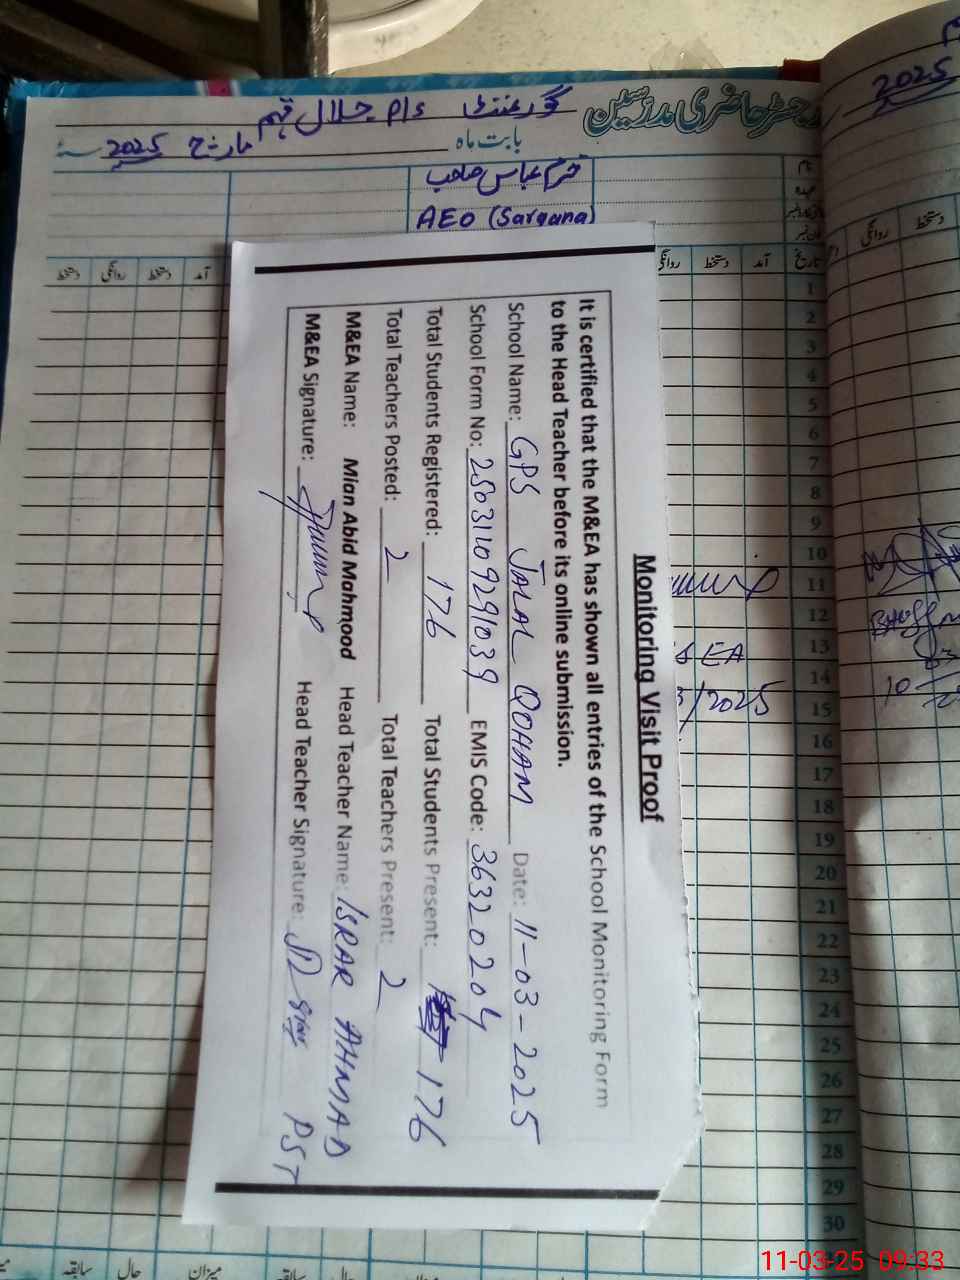 رجسٹر حاضری مدرسین
گورنمنٹ p/s جلال قہم
بابت ماہ مارچ 2025
2025
خرم عباس صاحب
AEO (Sargana)
نام
عہدہ
تاریخ آمد دستخط روانگی
آمد دستخط روانگی دستخط
روانگی دستخط
1
2
3
4
5
6
7
8
9
10
11
12
13
14
15
16
17
18
19
20
21
22
23
24
25
26
27
28
29
30
Monitoring Visit Proof
It is certified that the M&EA has shown all entries of the School Monitoring Form
to the Head Teacher before its online submission.
School Name: GPS JALAL QOHAM Date: 11-03-2025
School Form No: 25031109291039 EMIS Code: 36320204
Total Students Registered: 176 Total Students Present: 176
Total Teachers Posted: 2 Total Teachers Present: 2
M&EA Name: Mian Abid Mahmood Head Teacher Name: ISRAR AHMAD
M&EA Signature: Head Teacher Signature: PST
EA
3/2025
10
میزان حال سابقہ میزان حال سابقہ
11-03-25 09:33